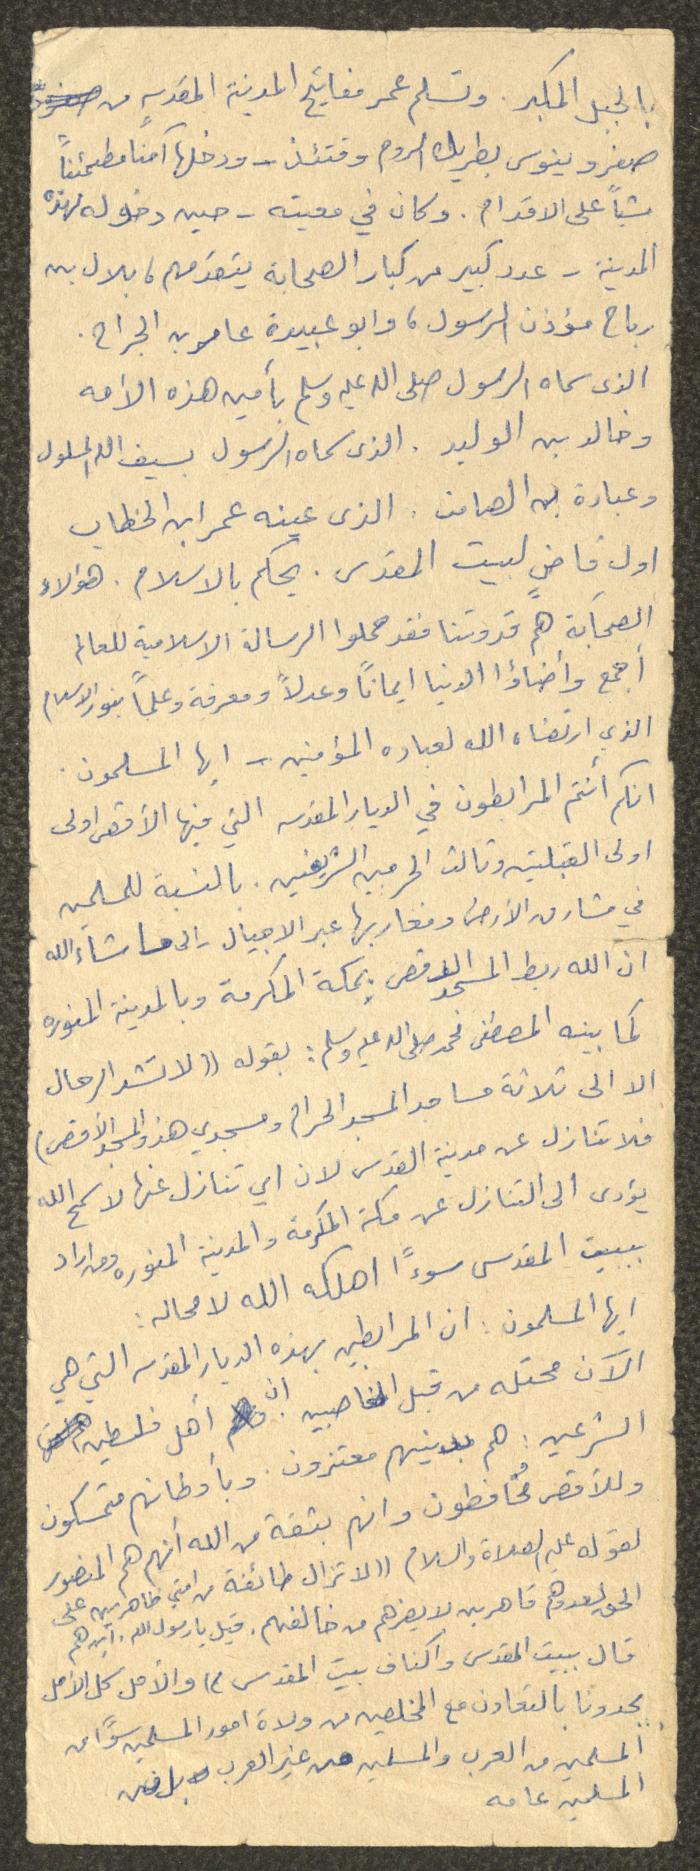 بالجبل المكبر. وتسلم عمر مفاتيح المدينة المقدسه من
صفرونيوس بطريك الروم وقتئذ - ودخلها آمناً مطمئناً
مشياً على الاقدام. وكان في معيته - حين دخوله لهذه
المدينة - عدد كبير من كبار الصحابة يتقدمهم، بلال بن
رباح مؤذن الرسول، وابو عبيدة عامر بن الجراح.
الذى سماه الرسول صلى الله عليه وسلم بأمين هذه الأمه
وخالد بن الوليد. الذى سماه الرسول بسيف الله المسلول
وعبادة بن الصامت. الذى عينه عمر ابن الخطاب
اول قاضٍ لبيت المقدس. يحكم بالاسلام. هؤلاء
الصحابة هم قدوتنا فقد حملوا الرسالة الاسلامية للعالم
أجمع وأضاؤا الدنيا ايماناً وعدلاً ومعرفة وعلماً بنور الاسلام
الذي ارتضاه الله لعباده المؤمنين - ايها المسلمون.
انكم أنتم المرابطون في الديار المقدسه التي فيها الأقصى اولى
اولى القبلتين وثالث الحرمين الشريفين. بالنسبة للمسلمين
في مشارق الأرض ومغاربها عبر الاجيال - الى ما شاء الله
ان الله ربط المسجد الاقصى بمكة المكرمة وبالمدينة المنوره
كما بينه المصطفى محمد صلى الله عليه وسلم: بقوله ((لا تشد الرحال
الا الى ثلاثة مساجد المسجد الحرام ومسجدي هذا والمسجد الأقصى)
فلا تنازل عن مدينة القدس لان اي تنازل عنها لا سمح الله
يؤدى الى التنازل عن مكة المكرمة والمدينة المنوره ومن اراد
ببيت المقدس سوءًا اهلكه الله لا محاله:
ايها المسلمون: ان المرابطين بهذه الديار المقدسه التي هي
الآن محتله من قبل الغاصبين. ان أهل فلسطين
الشرعين: هم بدينهم معتزون. وبأوطانهم متمسكون
وللأقصى مُحافظون وانهم بثقة من الله أنهم هم المنصور
لقوله عليه الصلاة والسلام ((لا تزال طائفة من امتي ظاهرين على
الحق لعدوهم قاهرين لا يضرهم من خالفهم. قيل يا رسول الله. أين هم
قال ببيت المقدس واكناف بيت المقدس)) والأمل كل الأمل
يحدونا بالتعاون مع المخلصين من ولاة امور المسلمين سوًا من
المسلمين من العرب والمسلمين من غير العرب بل من
المسلمين عامه